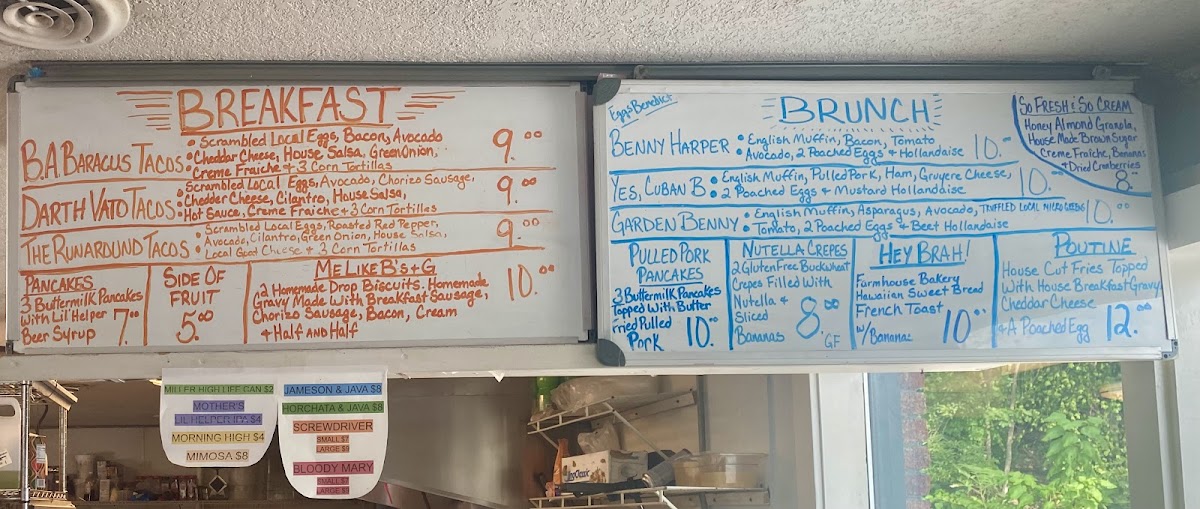 BREAKFAST
B.A BARACUS TACOS
• Scrambled Local Eggs, Bacon, Avocado
• Cheddar Cheese, House Salsa, Green Onion,
Creme Fraiche & 3 Corn Tortillas
9.00
DARTH VATO TACOS
Scrambled Local Eggs, Avocado, Chorizo Sausage,
• Chedder Cheese, Cilantro, House Salsa,
• Hot Sauce, Creme Fraiche & 3 Corn Tortillas
9.00
THE RUNAROUND TACOS
• Scrambled Local Eggs, Roasted Red Pepper,
• Avocado, Cilantro, Green Onion, House Salsa,
Local Goat Cheese & 3 Corn Tortillas
9.00
PANCAKES
3 Buttermilk Pancakes
With Lil' Helper
Beer Syrup 7.00
SIDE OF
FRUIT
5.00
ME LIKE B'S & G
2 Homemade Drop Biscuits. Homemade
Gravy Made With Breakfast Sausage,
Chorizo Sausage, Bacon, Cream
& Half AND Half
10.00
Eggs Benedict
BRUNCH
BENNY HARPER
• English Muffin, Bacon, Tomato
• Avocado, 2 Poached Eggs & Hollandaise
10.00
YES, CUBAN B.
• English Muffin, Pulled Pork, Ham, Gruyere Cheese,
• 2 Poached Eggs & Mustard Hollandaise
10.00
GARDEN BENNY
• English Muffin, Asparagus, Avocado, TRUFFLED LOCAL MICRO GREENS
• Tomato, 2 Poached Eggs & Beet Hollandaise
10.00
SO FRESH & SO CREAM
Honey Almond Granola,
House Made Brown Sugar
Creme Fraiche, Bananas
& Dried Cranberries
8.00
PULLED PORK
PANCAKES
3 Buttermilk Pancakes
Topped With Butter
Fried Pulled
Pork 10.00
NUTELLA CREPES
2 Gluten Free Buckwheat
Crepes Filled With
Nutella &
Sliced
Bananas
8.00
GF
HEY BRAH!
Farmhouse Bakery
Hawaiian Sweet Bread
French Toast
w/Bananas 10.00
POUTINE
House Cut Fries Topped
With House Breakfast Gravy
Cheddar Cheese
& A Poached Egg 12.00
MILLER HIGH LIFE CAN $2
MOTHER'S
LIL HELPER IPA $4
MORNING HIGH $4
MIMOSA $8
JAMESON & JAVA $8
HORCHATA & JAVA $8
SCREWDRIVER
SMALL $7
LARGE $9
BLOODY MARY
SMALL $7
LARGE $9